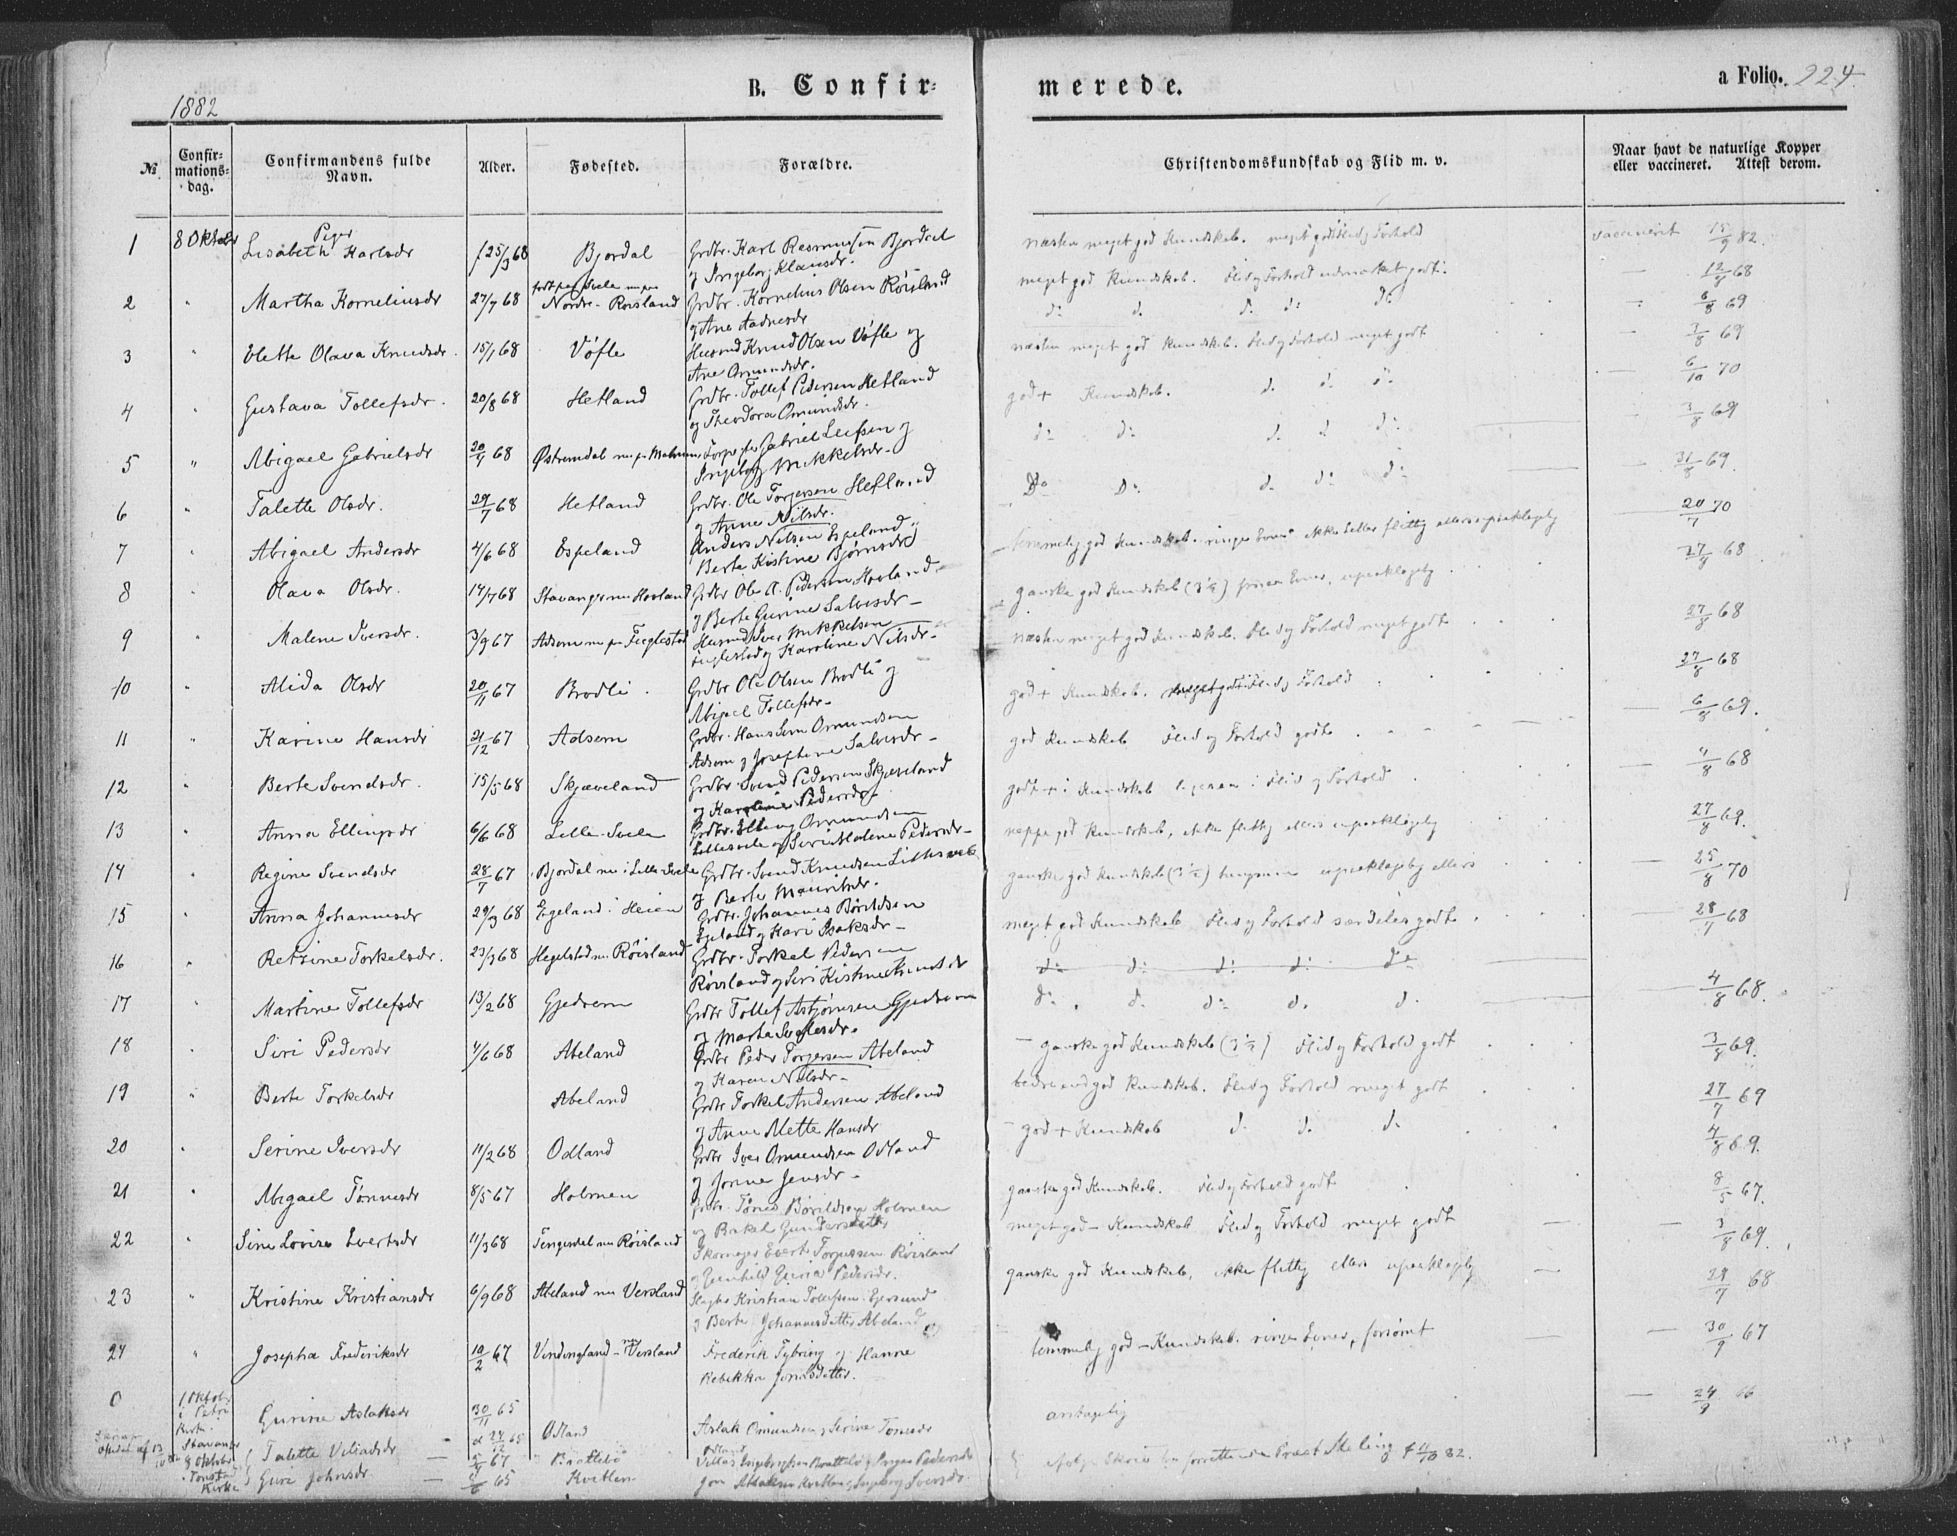 B. Confir-
merede.
a Folio. 224.
1882
№
Confir-
mations-
dag.
Confirmandens fulde
Navn.
Alder.
Fødested.
Forældre.
Christendomskundskab og Flid m. v.
Naar havt de naturlige Kopper
eller vaccineret. Attest derom.
Piger
1 8 Oktobr Lisabeth Karlsdr f 25/3 68 Bjordal Grdbr. Karl Rasmussen Bjordal
og Ingeborg Klausdr.
næsten meget god Kundskab. meget godt Flid og Forhold vaccineret 15/9 82.
2 " Martha Korneliusdr 27/7 68 Nordre-Roisland Grdbr. Kornelius Olsen Röisland
og Ane Aadnesdr
meget god Kundskab. Flid og Forhold udmærket godt. 12/9 68
d: d. d. d: d: 6/8 69
3 " Olette Olava Knudsdr. 15/1 68 Vöfle Husmd Knud Olsen Vöfle og
Ane Omundsdr.
næsten meget god Kundskab. Flid og Forhold meget godt 3/8 69
4 " Gustava Tollefsdr. 20/8 68 Hetland Grdbr. Tollef Pedersen Hetland
og Theodora Omundsdr.
god + Kundskab. d. d. d: 6/10 70
5 " Abigael Gabrielsdr 20/4 68 Østremdal Gabriel Leifsen og
Ingeborg Mikkelsdr.
d: d: d. d d: 3/8 69
6 " Talette Olsdr. 29/7 68 Hetland Grdbr. Ole Torjersen Hetland
og Anne Nilsdr.
Do D: d. d: d: 31/8 69.
7 " Abigael Andersdr 4/6 68 Espeland Anders Nilsen Espeland og
Berte Kistine Bjørnsdr
temmelig god Kundskab. ringe Evner ikke heller flittig ellers upaaklagelig 20/7 70
8 " Olava Olsdr. 14/7 68 Stavanger nu Hovland Grdbr Ole A. Pedersen Hovland
og Berte Gurine Salvesdr
ganske god Kundskab (3 ½) Evner, upaaklagelig 27/8 68
9 " Malene Iversdr. 3/9 67 Adsem nu paa Fuglestad Husmd Iver Mikkelsen
Fuglestad og Karoline Nilsdr
næsten meget god Kundskab. Flid og Forhold meget godt 27/8 68
10 " Alida Olsdr 20/11 67 Brodli. Grdbr Ole Olsen Brodli og
Abigael Tollefsdr
god + Kundskab. Flid og Forhold 27/8 68
11 " Karine Hansdr 21/12 67 Adsem Grdbr. Hans Sem Omundsen
Adsem og Josephine Salvesdr
god Kundskab Flid og Forhold godt 6/8 69.
12 " Berte Svendsdr. 15/5 68 Skjæveland Grdbr. Svend Pedersen Skjæveland
og Karoline Pedersdr
godt + i Kundskab ligesaa i Flid og Forhold 4/8 68
13 " Anna Ellingsdr 6/6 68 Lille-Svela Grdbr. Elling Omundsen
Lillesvela og Siri Malene Pedersdr
neppe god Kundskab, ikke flittig ellers upaaklagelig 27/8 69.
14 " Regine Svendsdr 28/7 67 Bjordal nu i Lille Svela Grdbr. Svend Knudsen Lillesvela
og Berte Mauritsdr.
ganske god Kundskab (3 ½) upaaklagelig ellers 25/8 70
15 " Anna Johannesdr 29/3 68 Egeland i Heien Grdbr. Johannes Bårildsen
Egeland og Kari Isaksdr
meget god Kundskab Flid og Forhold særdeles godt 28/7 68
16 " Retsine Torkelsdr. 23/3 68 Hegelstad nu Röisland Grdbr. Torkel Pedersen
Röisland og Siri Kistine
d: d: d: d: d:
17 " Martine Tollefsdr 13/2 68 Gjedrem Grdbr Tollef Asbjørnsen Gjedrem
og Marta
d: d. d: d. d. 4/8 68.
18 . Siri Pedersdr 4/6 68 Abeland Grdbr Peder Torjersen Abeland
og Karen Nilsdr
ganske god Kundskab (3 ½) Flid og Forhold godt 3/8 69.
19 " Berte Torkelsdr Abeland Grdbr Torkel Andersen Abeland
og Anne Mette Hansdr
bedre end god Kundskab. Flid og Forhold meget godt 27/7 69
20 " Serine Iversdr 11/2 68 Odland Grdbr Iver Omundsen Odland
og Jonne Jensdr
god + Kundskab d. d. d. 4/8 69.
21 " Abigael Tønnesdr 8/5 67 Holmen Tönnes Bårildsen Holmen
og Rakel Gundersdatter
ganske god Kundskab. Flid og Forhold godt 8/5 67.
22 " Sine Lovise Evertsdr 11/3 68 Tengesdal nu Röisland Skomager Evert Torgersen Röisland
og Gunhild Guria Pedersdr.
meget god - Kundskab Flid og Forhold meget godt 3/8 69.
23 " Kristine Kristiansdr 6/9 68 Abeland nu Versland Kristian Tollefsen Egersund
og Berte Johannesdatter Abeland
ganske god Kundskab, ikke flittig ellers upaaklagelig 29/7 68
24 " Josepha Frederiksdr 10/2 67 Vindingland nu Versland Frederik Tybring og Hanne
Rebekka Jonasdatter.
temmelig god - Kundskab. ringe Evner, forsömt 30/9 67
0 1 Oktobr
i Petri
Kirke
Stavanger
Gurine Aslaksdr 30/11 65 Odland Aslak Omundsen og Serine Tonesdr
Odland
antagelig 24/9 66
9 Oktobr
i Tonstad
Kirke
Talette Veliadsdr 67 Brattebö Pedersdr
Guri Johnsdr 65 Kvitlen Ingeborg Iversdr.
Præst Steling 4/10 82.